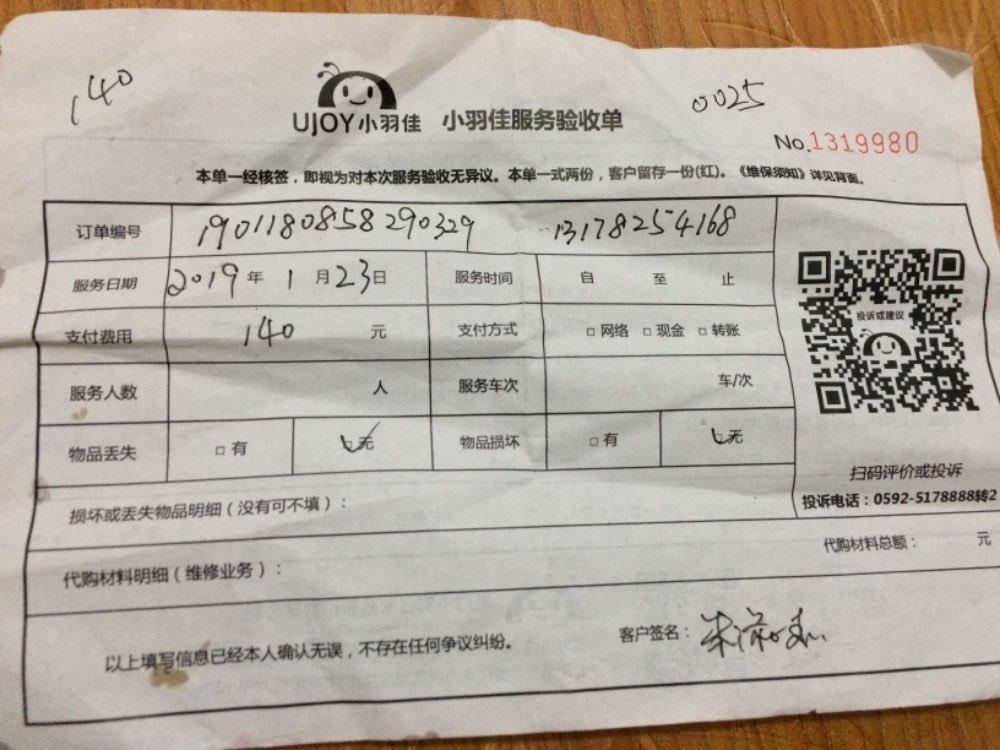 140
0025
UJOY小羽佳 小羽佳服务验收单
No.1319980
本单一经核签，即视为对本次服务验收无异议。本单一式两份，客户留存一份(红)。《维保须知》详见背面。
订单编号 1901180858290329 13178254168
服务日期 2019年1月23日 服务时间 自 至 止
投诉或建议
支付费用 140 元 支付方式 □网络 □现金 □转账
服务人数 人 服务车次 车/次
物品丢失 □有 ☑无 物品损坏 □有 ☑无
扫码评价或投诉
投诉电话：0592-5178888转2
损坏或丢失物品明细（没有可不填）：
代购材料总额： 元
代购材料明细（维修业务）：
以上填写信息已经本人确认无误，不存在任何争议纠纷。 客户签名：